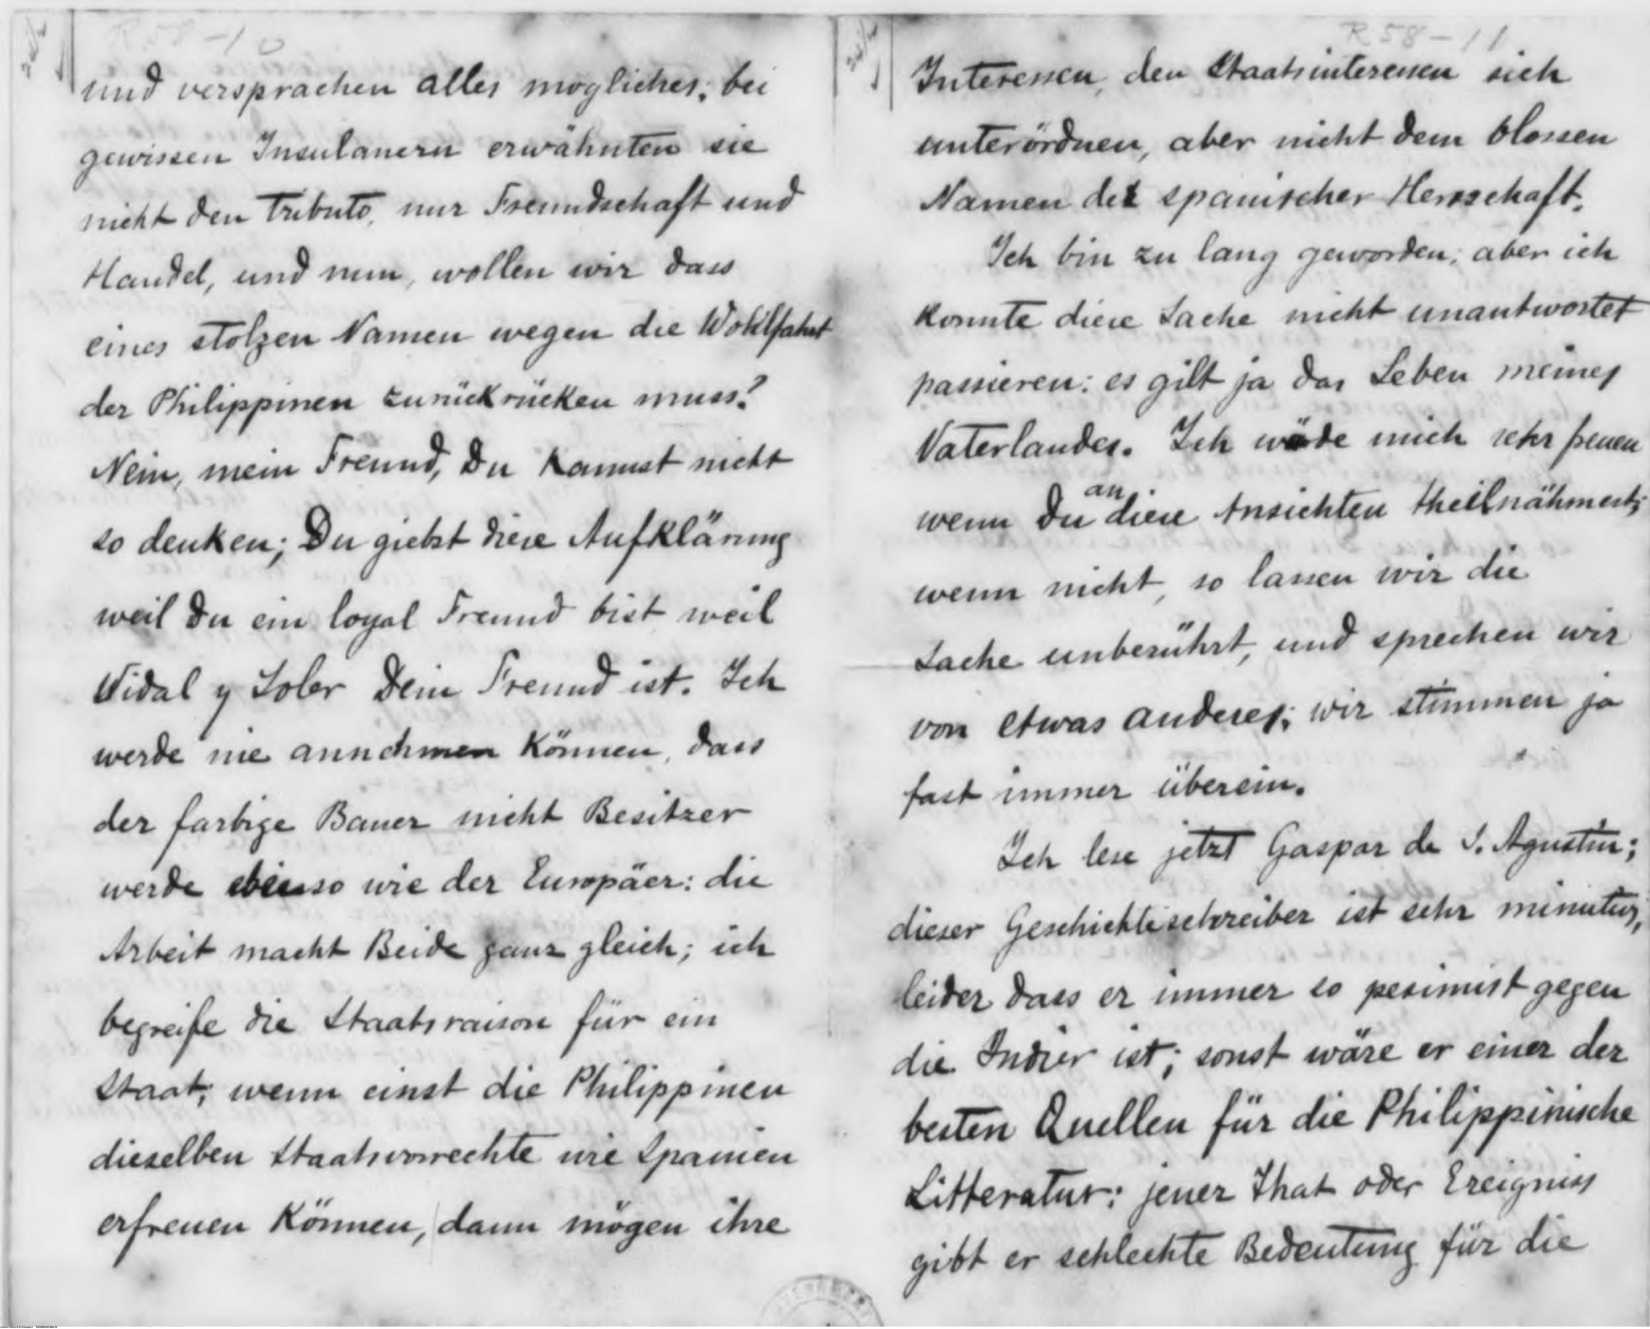 R 58-10
und versprachen alles mögliches; bei
gewissen Insulanern erwähnten sie
nicht den tributo, nur Freundschaft und
Handel, und nun, wollen wir dass
eines stolzen Namen wegen die Wohlfahrt
der Philippinen zurückrücken muss?
Nein, mein Freund, Du kannst nicht
so denken; Du giebst diese Aufklärung
weil Du ein loyal Freund bist weil
Vidal y Soler Dein Freund ist. Ich
werde nie annehmen können, dass
der farbige Bauer nicht Besitzer
werde ebenso wie der Europäer: die
Arbeit macht Beide ganz gleich; ich
begreife die Staatsraison für ein
Staat; wenn einst die Philippinen
dieselben Staatsvorrechte wie Spanien
erfreuen können, dann mögen ihre
R 58-11
Interessen, den Staatsinteressen sich
unterördnen, aber nicht dem blossen
Namen der spanischer Herrschaft.
Ich bin zu lang geworden; aber ich
konnte diese Sache nicht unantwortet
passieren: es gilt ja das Leben meines
Vaterlandes. Ich würde mich sehr freuen
wenn Du an diese Ansichten theilnähmest;
wenn nicht, so lassen wir die
Sache unberührt, und sprechen wir
von etwas anderes; wir stimmen ja
fast immer überein.
Ich lese jetzt Gaspar de S. Agustin;
dieser Geschichtsschreiber ist sehr
leider dass er immer so pesimist gegen
die Indier ist; sonst wäre er einer der
besten Quellen für die Philippinische
Litteratur: jener That oder Ereigniss
gibt er schlechte Bedeutung für die